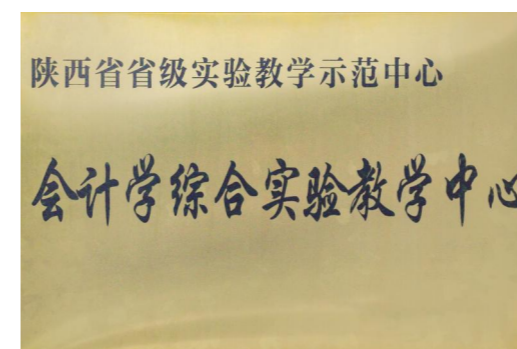 陕西省省级实验教学示范中心
会计学综合实验教学中心